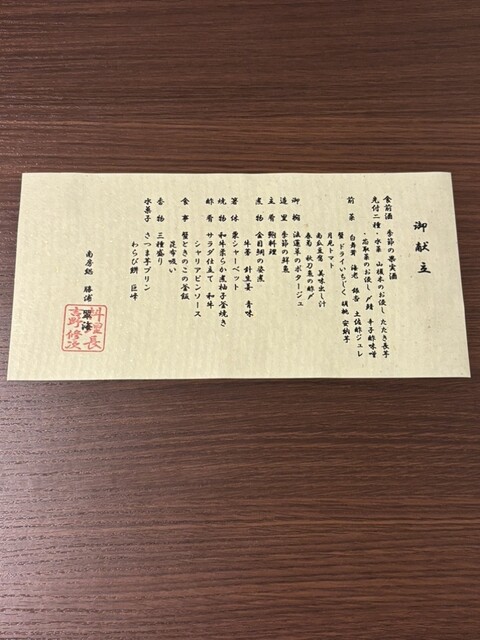 御献立
食前酒　季節の果実酒
先付二種・水菜　山榎木のお浸し　たたき長芋
・忍取菜のお浸し　〆鯖　辛子酢味噌
前菜　白舞茸　海老　銀杏　土佐酢ジュレ
蟹　ドライいちじく　胡桃　安納芋
月見トマト
南瓜豆腐　美味出し汁
春菊　秋刀魚の酢〆
御椀　法蓮草のポタージュ
造里　季節の鮮魚
主肴　鮑料理
煮物　金目鯛の姿煮
牛蒡　針生姜　青味
箸休　栗シャーベット
焼物　和牛柔らか煮柚子釜焼き
酢肴　サラダ仕立て　和牛
シャリアピンソース
食事　蟹ときのこの釜飯
昆布吸い
香物　三種盛り
水菓子　さつま芋プリン
わらび餅　巨峰
南房総　勝浦　翠海
料理長
吉野修次